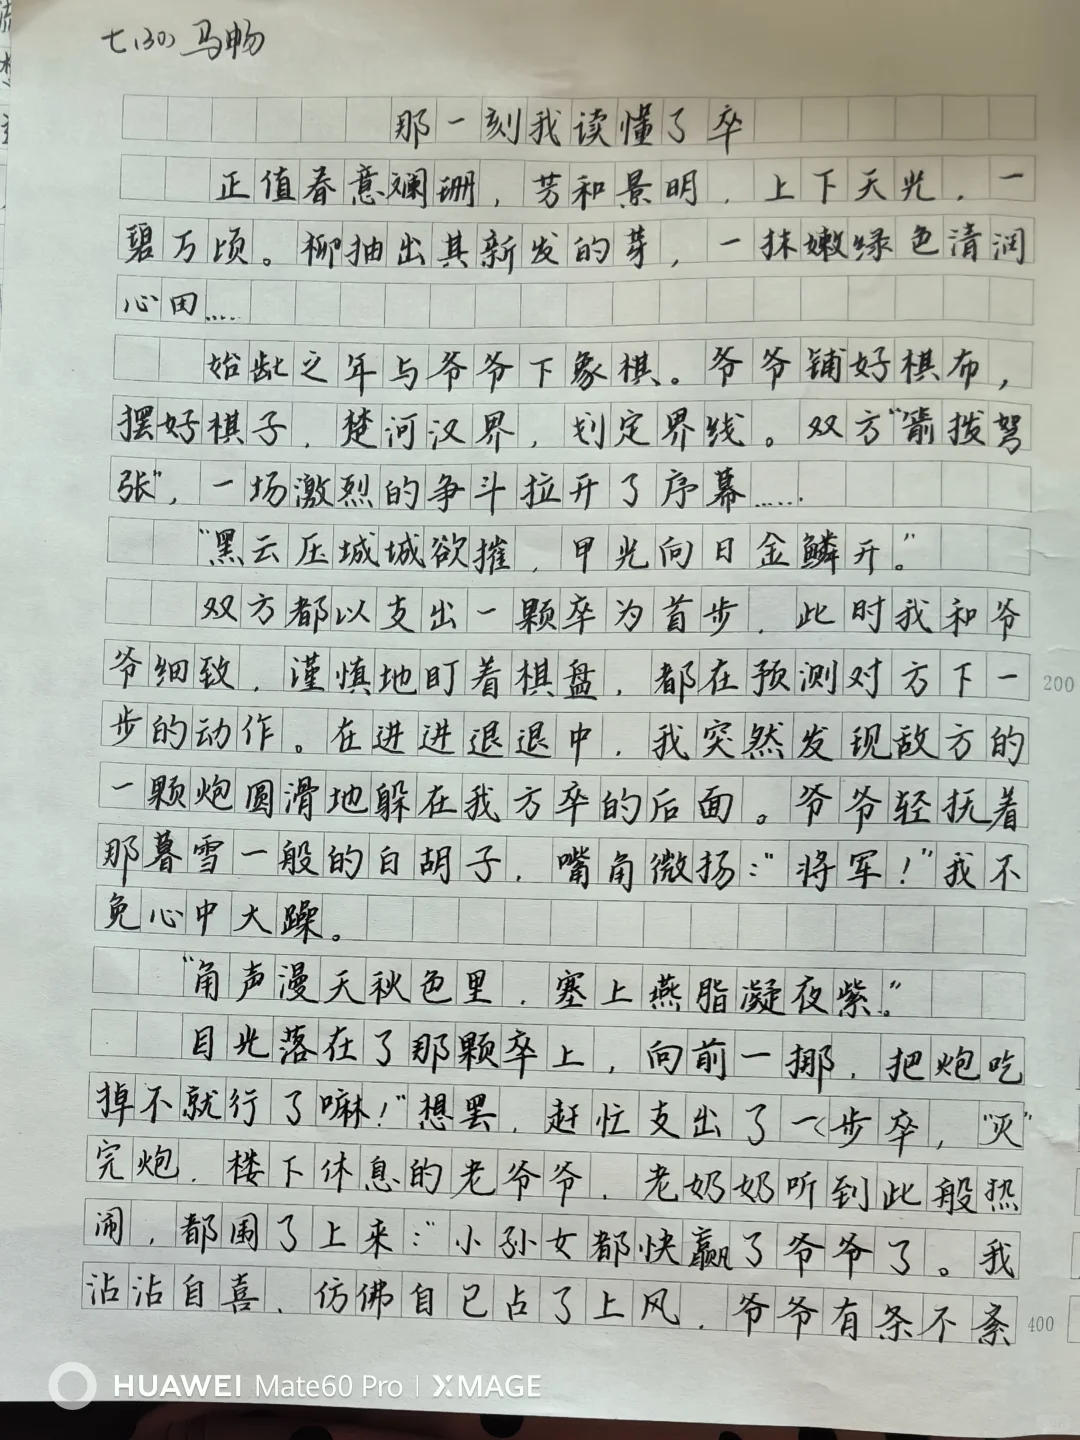 七(30) 马畅
那一刻我读懂了卒
正值春意斓珊，芳和景明，上下天光，一
碧万顷。柳抽出其新发的芽，一抹嫩绿色清润
心田……
始龀之年与爷爷下象棋。爷爷铺好棋布，
摆好棋子，楚河汉界，划定界线。双方“箭拨弩
张”，一场激烈的争斗拉开了序幕……
“黑云压城城欲摧，甲光向日金鳞开。”
双方都以支出一颗卒为首步，此时我和爷
爷细致，谨慎地盯着棋盘，都在预测对方下一
步的动作。在进进退退中，我突然发现敌方的
一颗炮圆滑地躲在我方卒的后面。爷爷轻抚着
那暮雪一般的白胡子，嘴角微扬：“将军！”我不
免心中大躁。
“角声漫天秋色里，塞上燕脂凝夜紫。”
目光落在了那颗卒上，向前一挪，把炮吃
掉不就行了嘛！”想罢，赶忙支出了一步卒，“灭”
完炮，楼下休息的老爷爷，老奶奶听到此般热
闹，都围了上来：“小孙女都快赢了爷爷了。我
沾沾自喜，仿佛自己占了上风，爷爷有条不紊
200
400
HUAWEI Mate60 Pro | XMAGE